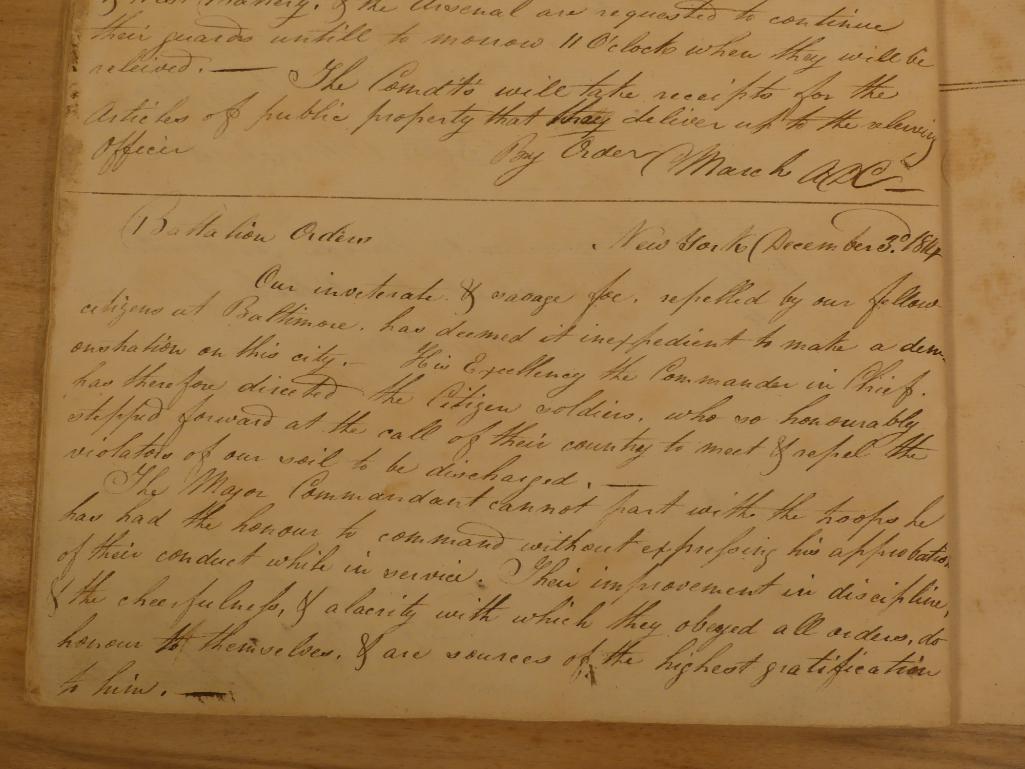 & West Battery, & the Arsenal are requested to continue
their guards untill to morrow 11 O'Clock when they will be
releived. — The Comdts will take receipts for the
Articles of public property that they deliver up to the releiving
Officer By Order March ADC —
Battalion Orders New York December 3d. 1814
Our inveterate & savage foe, repelled by our fellow
citizens at Baltimore, has deemed it inexpedient to make a dem-
onstration on this city. — His Excellency the Commander in Chief,
has therefore directed the Citizen soldiers, who so honourably
stepped forward at the call of their country to meet & repel the
violators of our soil to be discharged. —
The Major Commandant cannot part with the troops he
has had the honour to command without expressing his approbation
of their conduct while in service. Their improvement in discipline,
& the cheerfulness, & alacrity with which they obeyed all orders, do
honour to themselves, & are sources of the highest gratification
to him. —